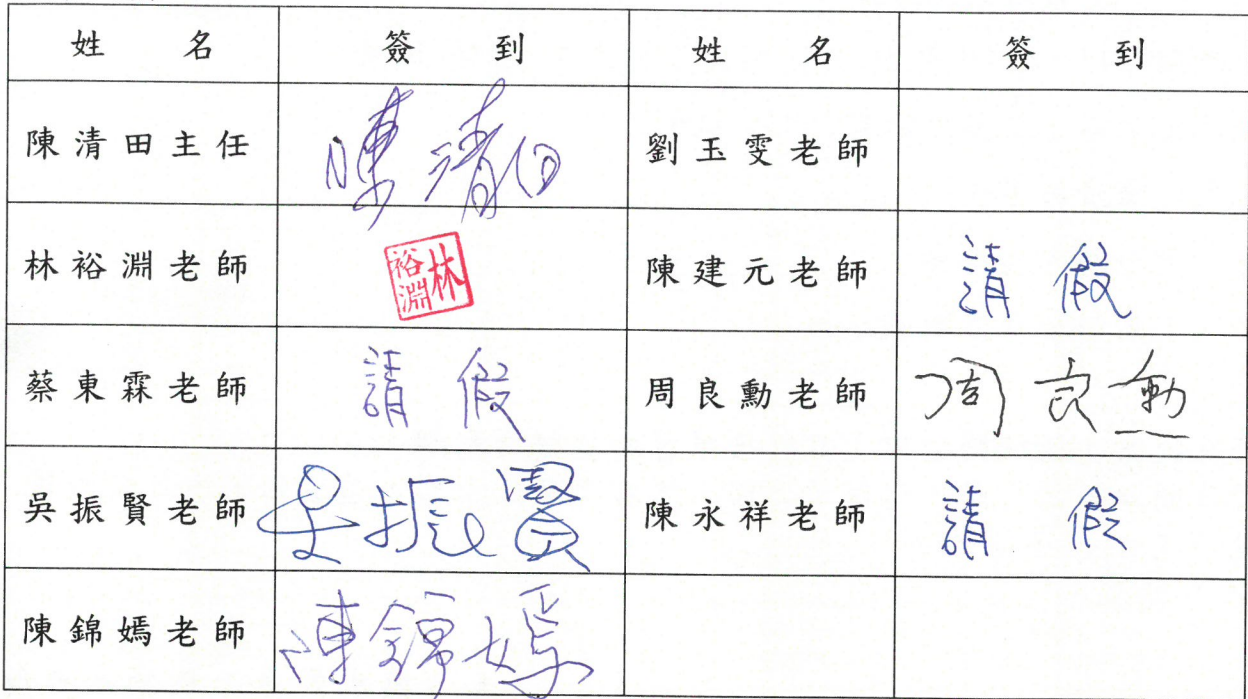 姓名 簽到 姓名 簽到
陳清田主任 陳清田 劉玉雯老師
林裕淵老師 林裕淵 陳建元老師 請假
蔡東霖老師 請假 周良勳老師 周良勳
吳振賢老師 吳振賢 陳永祥老師 請假
陳錦嫣老師 陳錦嫣